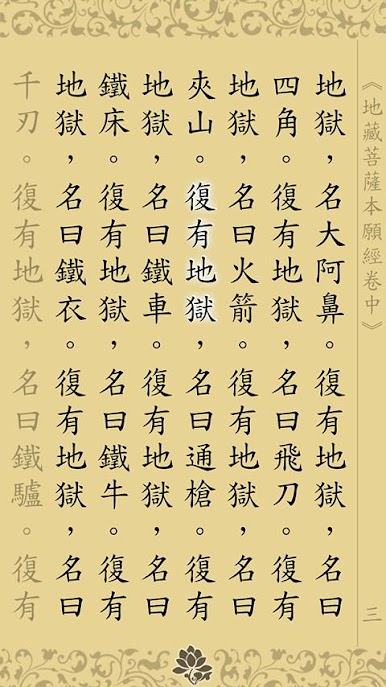 《地藏菩薩本願經卷中》
三
地獄，名大阿鼻。復有地獄，名曰
四角。復有地獄，名曰飛刀。復有
地獄，名曰火箭。復有地獄，名曰
夾山。復有地獄，名曰通槍。復有
地獄，名曰鐵車。復有地獄，名曰
鐵床。復有地獄，名曰鐵牛。復有
地獄，名曰鐵衣。復有地獄，名曰
千刃。復有地獄，名曰鐵驢。復有